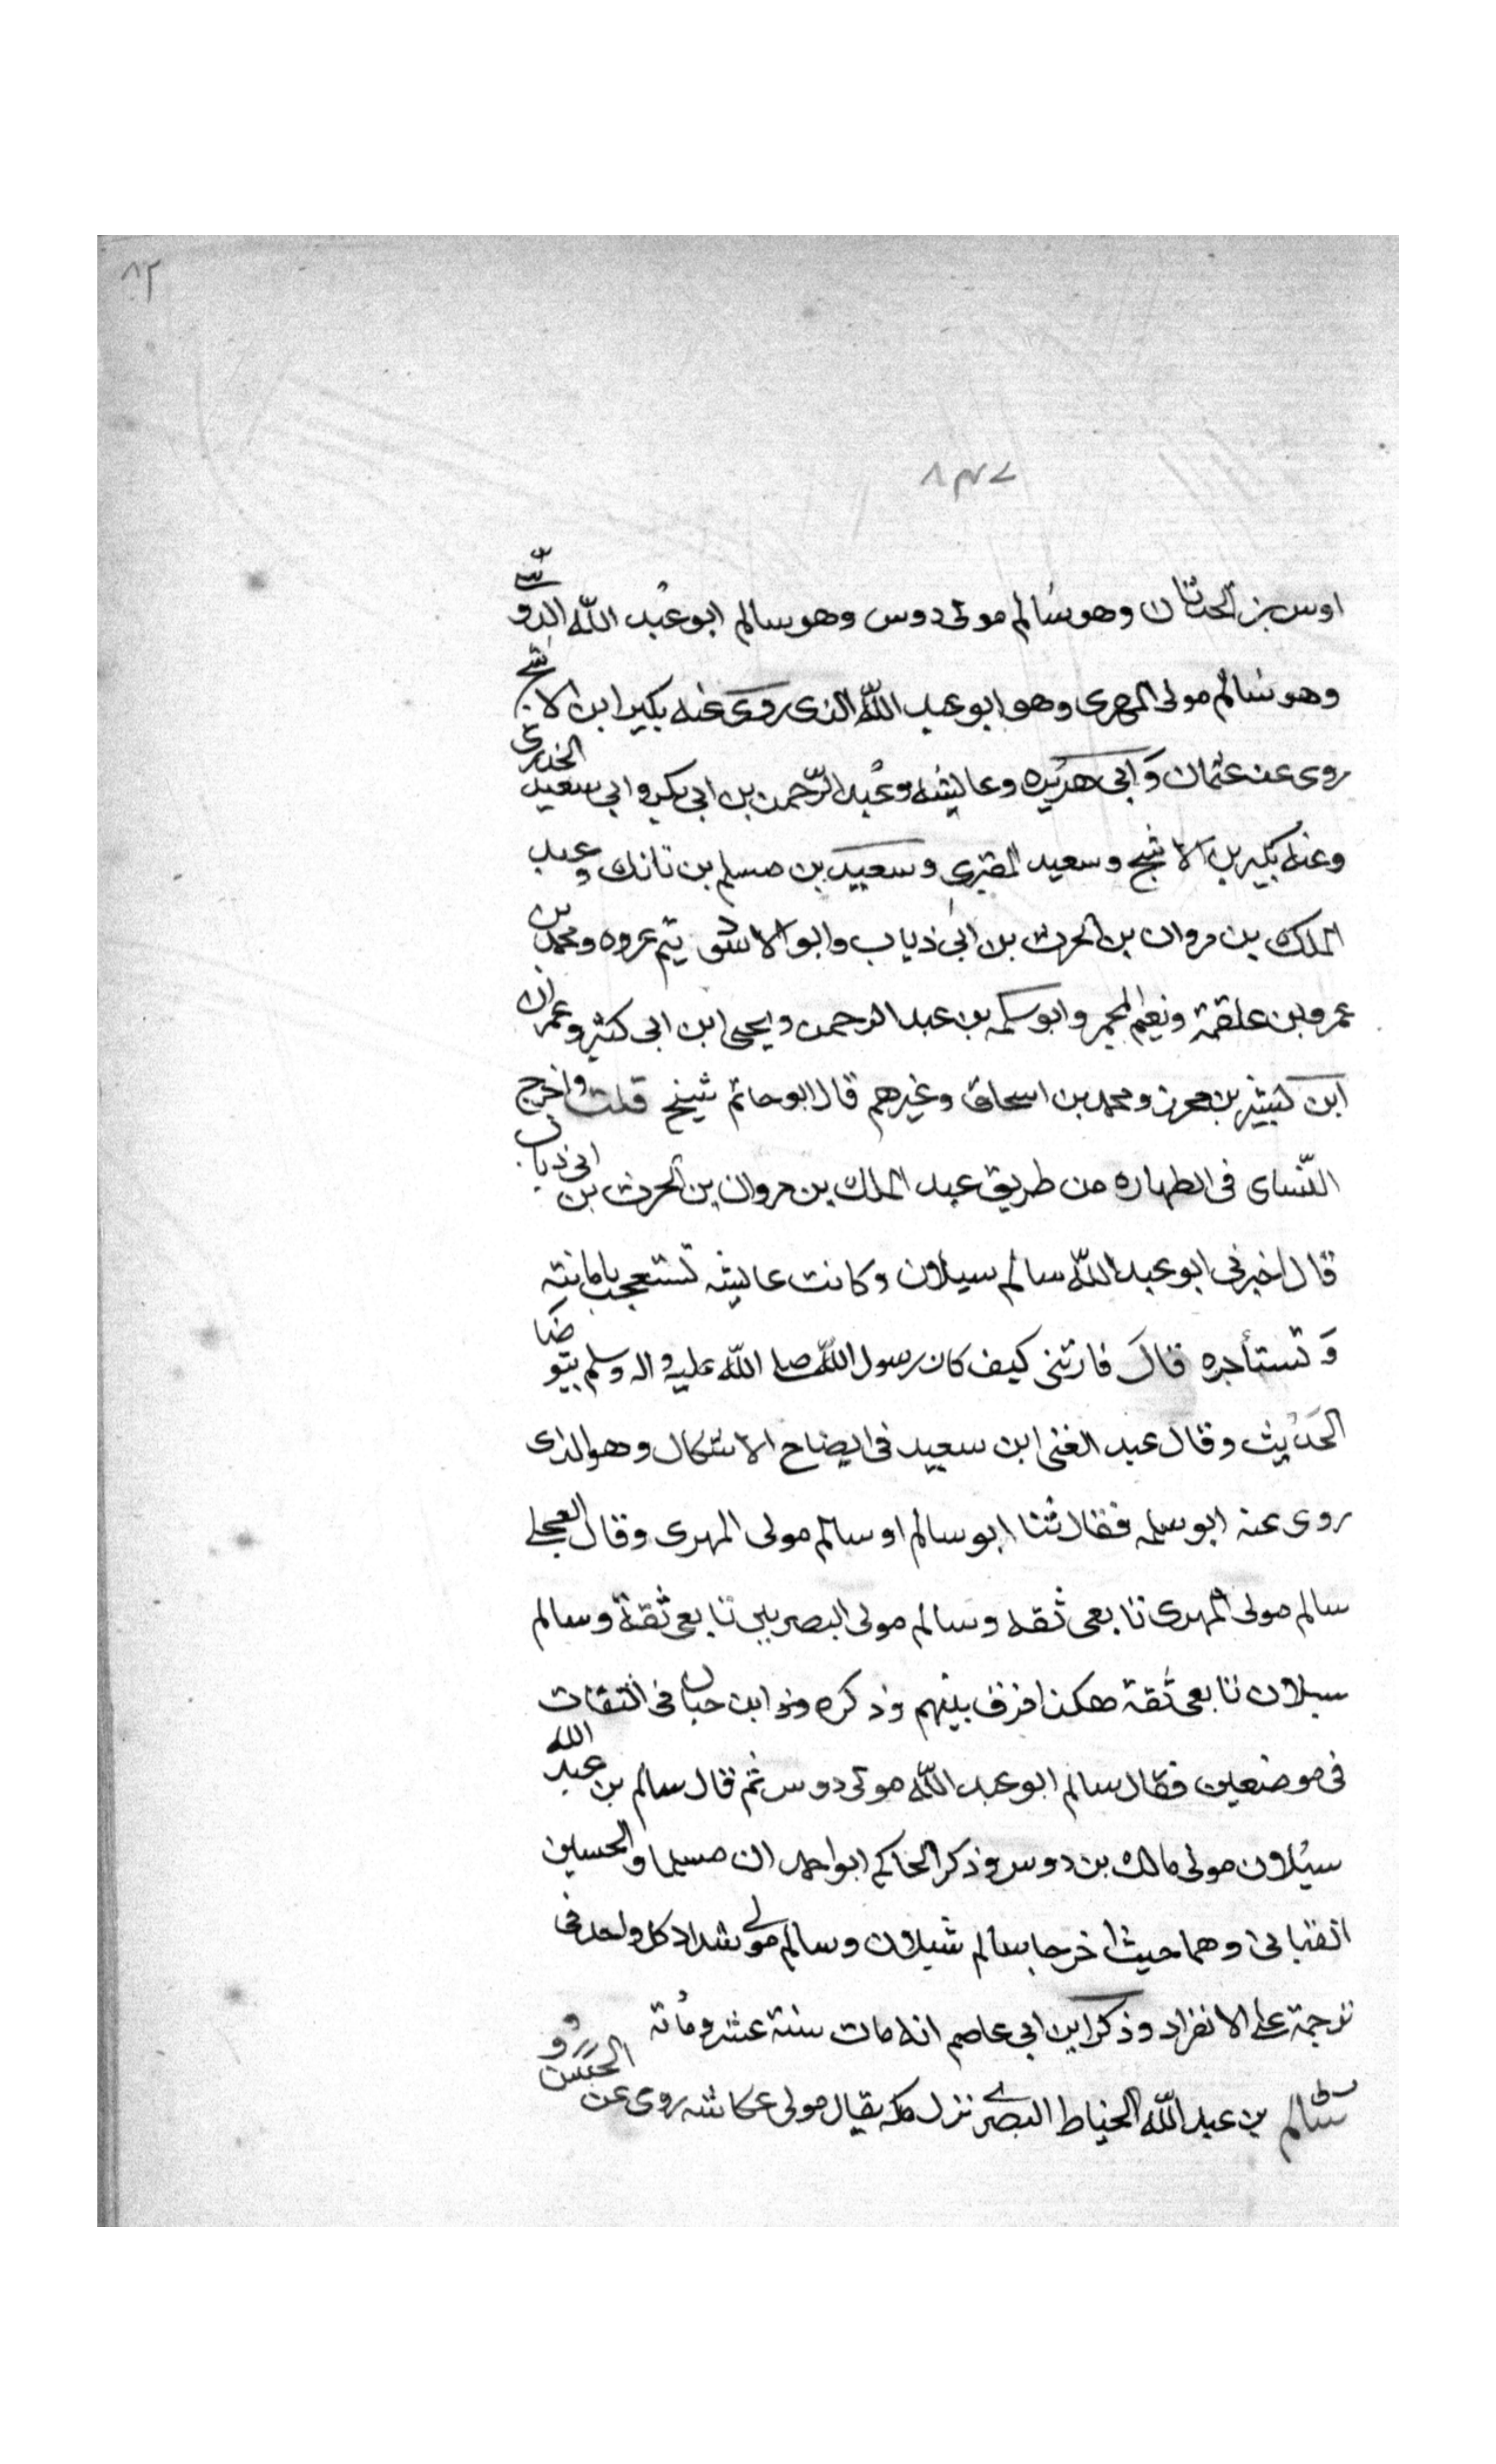 ٨٢
٨٣٧
اوس بن الحدثان وهو سالم مولى دوس وهو سالم ابو عبد الله الدوسى
وهو سالم مولى المهرى وهو ابو عبد الله الذى روى عنه بكير ابن الاشج
روى عن عثمان وَابى هريره وعايشه وعبد الرّحمن بن ابى بكر وابى سعيد الخدرى
وعنه بكير بن الاشج وسعيد المقبرى وسعيد بن مسلم بن نانك وعبد
الملك بن مروان بن الحرث بن ابى ذياب وابو الاسود يتم عروه ومحمد بن
عمرو بن علقمة ونعيم المجمر وابو سلمه بن عبد الرحمن ويحيى ابن ابى كثير وعمران
ابن كبشير بن محرز ومحمد بن اسحاق وغيرهم قال ابو حاتم شيخ قلت واخرج
النّساى فى الطهاره من طريق عبد الملك بن مروان بن الحرث بن ابى ذياب
قال اخبرنى ابو عبد اللّه سالم سبلان وكانت عايشه تستعجب بامانته
وَتستأجره قال فارتنى كيف كان رسول اللّه صلى اللّه عليه واله وسلم يتوضا
الحَديث وقال عبد الغنى ابن سعيد فى ايضاح الاشكال وهو الذى
روى عنه ابو سلمه فقال ثنا ابو سالم او سالم مولى المهرى وقال العجلى
سالم مولى المهرى تابعى ثقه وسالم مولى البصريين تابعى ثقة وسالم
سبلان تابعى ثقة هكذا فرق بينهم وذكره ابن حبان فى الثقات
فى موضعين فقال سالم ابو عبد اللّه مولى دوس ثم قال سالم بن عبد الله
سبلان مولى مالك بن دوس وذكر الحاكم ابو احمد ان مسلما والحسين
القبانى وهما حيث اخرجا سالم شبلان وسالم مولى شداد كل واحد فى
ترجمة على الانفراد وذكر ابن ابى عاصم انه مات سنة عشر ومُاتة
سالم بن عبد اللّه الخياط البصرى نزل مكه يقال مولى عكاشه روى عن الحسن و